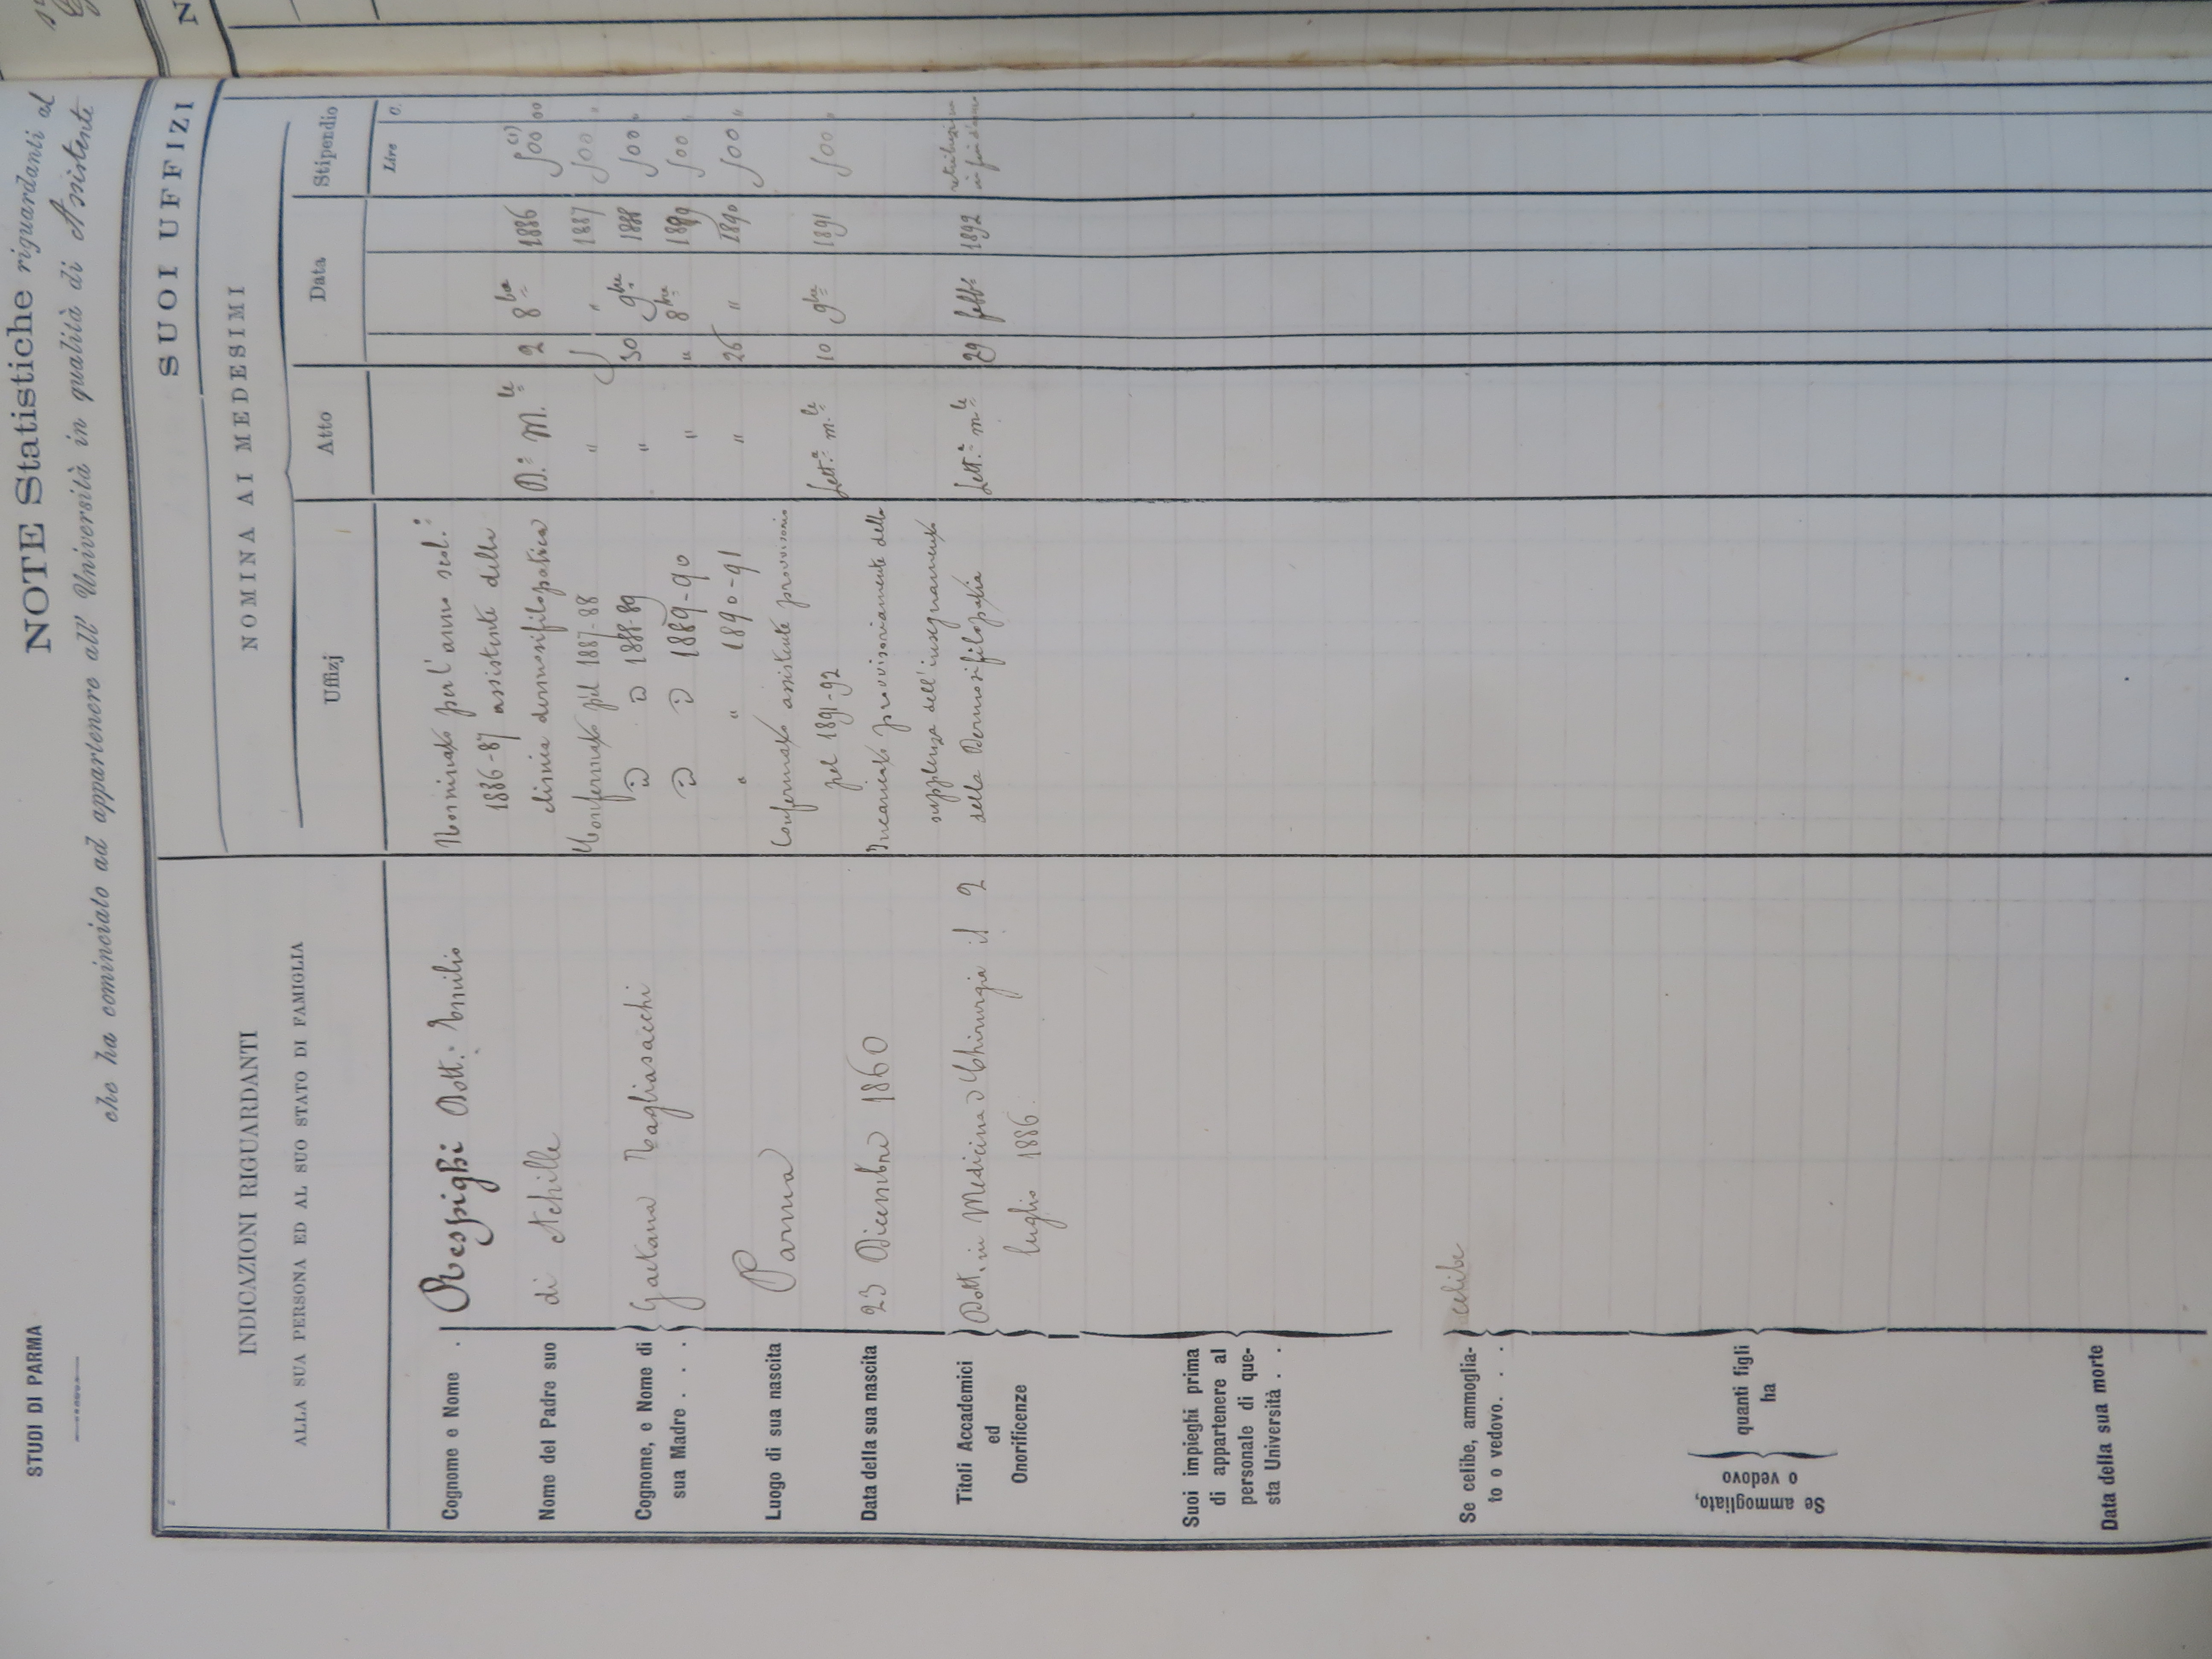 STUDI DI PARMA
NOTE Statistiche riguardanti al
che ha cominciato ad appartenere all' Università in qualità di Assistente
INDICAZIONI RIGUARDANTI
ALLA SUA PERSONA ED AL SUO STATO DI FAMIGLIA
Cognome e Nome . Respighi Dott. Emilio
Nome del Padre suo di Achille
Cognome, e Nome di
sua Madre . . . Gaetana Tagliasacchi
Luogo di sua nascita Parma
Data della sua nascita 23 Dicembre 1860
Titoli Accademici
ed
Onorificenze
Dott. in Medicina e Chirurgia il 2
luglio 1886.
Suoi impieghi prima
di appartenere al
personale di que-
sta Università . .
Se celibe, ammoglia-
to o vedovo. . . . celibe
Se ammogliato,
o vedovo
quanti figli
ha
Data della sua morte
SUOI UFFIZI
NOMINA AI MEDESIMI
Uffizj Atto Data Stipendio
Lire
Nominato per l'anno scol.
1886-87 assistente della
clinica dermosifilopatica D. M.le 2 8bre 1886 500 00 (1)
Confermato pel 1887-88 " " 1887 500 "
id id 1888-89 " 30 9bre 1888 500 "
id id 1889-90 " " 8bre 1889 500 "
" " 1890-91 " 26 " 1890 500 "
Confermato assistente provvisorio
pel 1891-92 Lett.a m.le 10 9bre 1891 500 "
Incaricato provvisoriamente della
supplenza dell'insegnamento
della Dermosifilopatia Lett.a m.le 29 febb. 1892 retribuzione
in fine d'anno